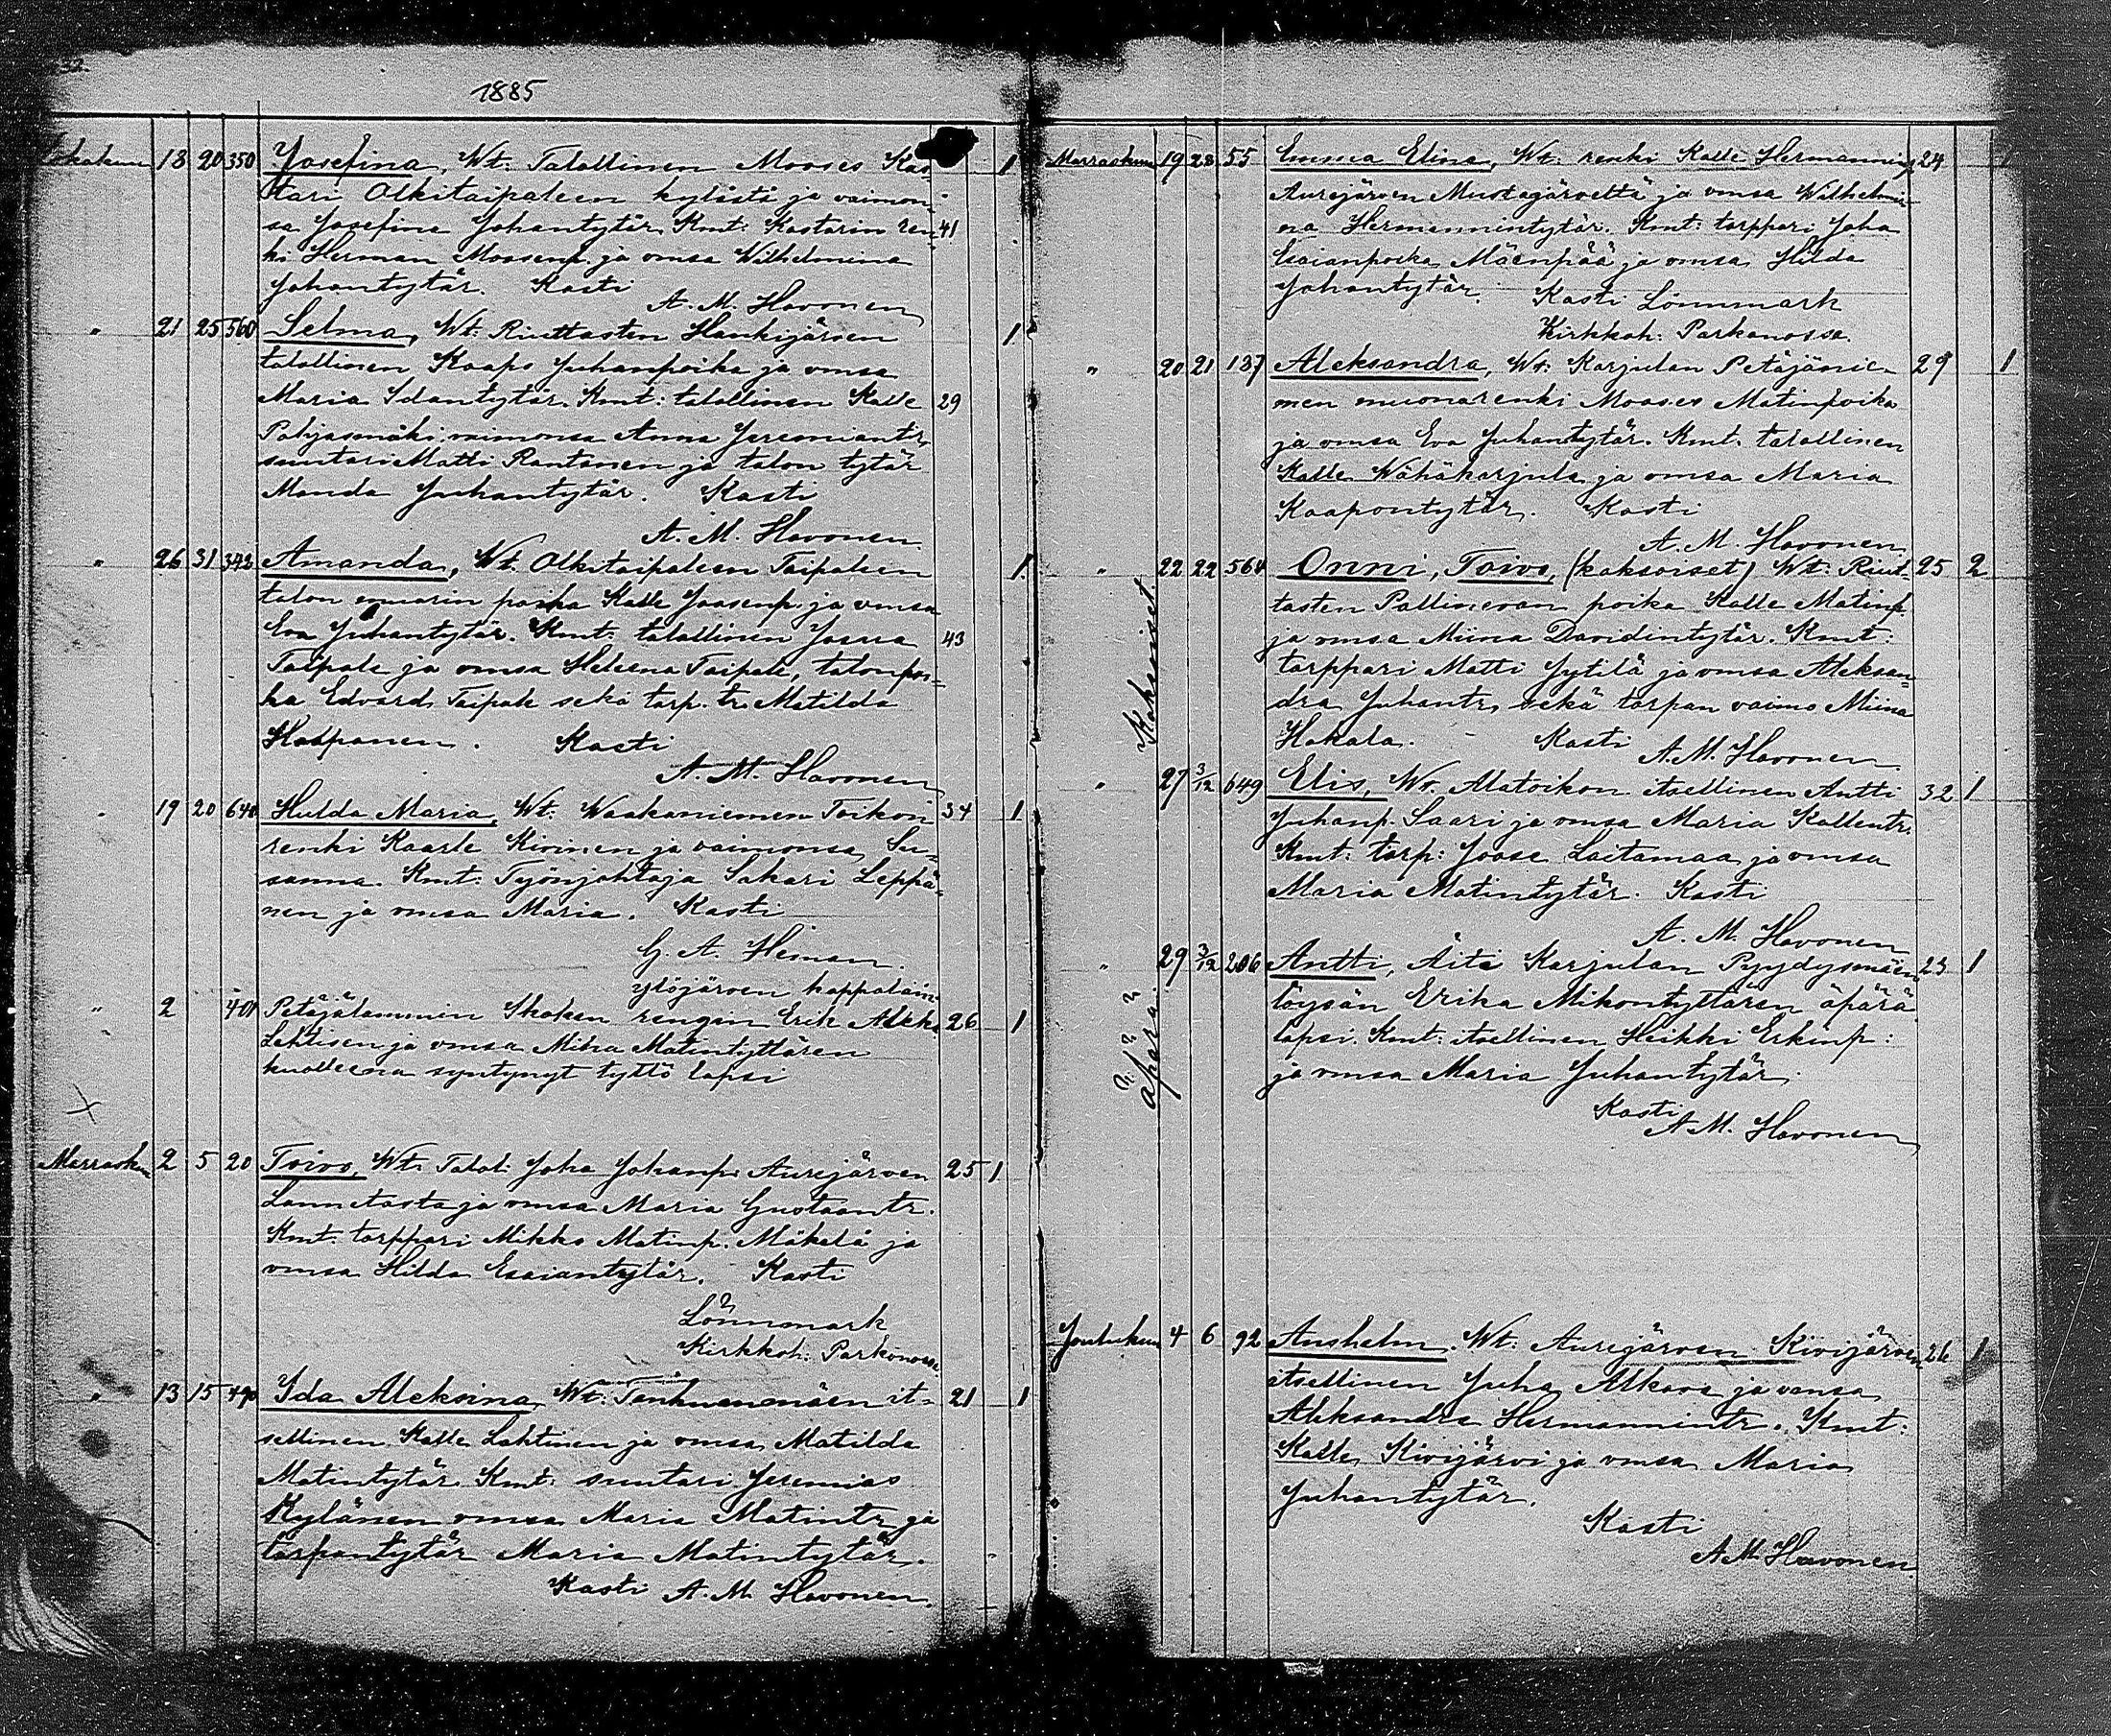 32.
1885
Lokakuun 18 20 350 Josefina, Wt: Talollinen Mooses Kas-
tari Olkitaipaleen kylästä ja vaimon-
sa Josefina Johantytär Kmt: Kastarin ren- 41 1
ki Herman Moosenp. ja vmsa Wilhelmina
Johantytär. Kasti
A. M. Havonen
" 21 25 560 Selma, Wt: Riuttasten Hankijärven 1
talollinen Kaapo Juhanpoika ja vmsa
Maria Idantytär. Kmt: talollinen Kalle 29
Pohjasmäki vaimonsa Anna Jeremiantr,
suutari Matti Rantanen ja talon tytär
Manda Juhantytär. Kasti
A. M. Havonen.
" 26 31 342 Amanda, Wt. Olkitaipaleen Taipaleen 1
talon muorin poika Kalle Joosenp. ja vmsa
Eva Juhantytär. Kmt: talollinen Josua 43
Taipale ja vmsa Heleena Taipale, talonpoi-
ka Edvard Taipale sekä torp. tr. Matilda
Haapanen. Kasti
A. M. Havonen
" 19 20 640 Hulda Maria, Wt: Waakaniemen Toikon 34 1
renki Kaarle Kivinen ja vaimonsa Su-
sanna. Kmt: Työnjohtaja Sakari Leppä-
nen ja vmsa Maria. Kasti
G. A. Heman.
ylöjärven kappalain.
" 2 401 Petäjälammin Skoken rengin Erik Aleks. 26 1
Lehtisen ja vmsa Miina Matintyttären
kuolleena syntynyt tyttö lapsi
Marraskn 2 5 20 Toivo, Wt: Talol: Joha Johanp. Aurejärven 25 1
Lannetasta ja vmsa Maria Gustaantr.
Kmt. torppari Mikko Matinp. Mäkelä ja
vmsa Hilda Esaiantytär. Kasti
Lönnmark
Kirkkoh. Parkanossa
" 13 15 490 Ida Aleksina, Wt: Tanhuanmäen it- 21 1
sellinen Kalle Lahtinen ja vmsa Matilda
Matintytär Kmt: suutari Jeremias
Kylänen vmsa Maria Matintr ja
torpantytär Maria Matintytär.
Kasti A. M. Havonen.
Marraskuun 19 28 55 Emma Elina, Wt: renki Kalle Hermanninp. 24 1
Aurejärven Mustajärveltä ja vmsa Wilhelmi-
na Hermannintytär. Kmt: torppari Joha
Esaianpoika Mäenpää ja vmsa Hilda
Johantytär. Kasti Lönnmark
Kirkkoh: Parkanossa.
" 20 21 137 Aleksandra, Wt: Karjulan Petäjänie- 29 1
men muonarenki Mooses Matinpoika
ja vmsa Eva Juhantytär. Kmt. talollinen
Kalle Wähäkarjula ja vmsa Maria
Kaapontytär. Kasti
A. M. Havonen
Kaksoiset.
" 22 22 564 Onni, Toivo, (kaksoiset) Wt: Riut- 25 2
tasten Pallinevan poika Kalle Matinp.
ja vmsa Miina Davidintytär. Kmt:
torppari Matti Jytilä ja vmsa Aleksan-
dra Juhantr, sekä torpan vaimo Miina
Hakala. Kasti A. M. Havonen.
" 27 3/12 649 Elis, Wt. Alatoikon itsellinen Antti 32 1
Juhanp. Saari ja vmsa Maria Kallentr.
Kmt: torp: Joose Laitamaa ja vmsa
Maria Matintytär. Kasti
A. M. Havonen
äpärä.
" 29 3/12 206 Antti, Äiti Karjulan Pyydysmäen 23 1
löysän Erika Mikontyttären äpärä
lapsi. Kmt: itsellinen Heikki Erkinp:
ja vmsa Maria Juhantytär.
Kasti
A M. Havonen
Joulukuu 4 6 92 Anshelm. Wt: Aurejärven Kivijärven 26 1
itsellinen Juha Alkava ja vmsa
Aleksandra Hermannintr. Kmt:
Kalle Kivijärvi ja vmsa Maria
Juhantytär.
Kasti
A M. Havonen.